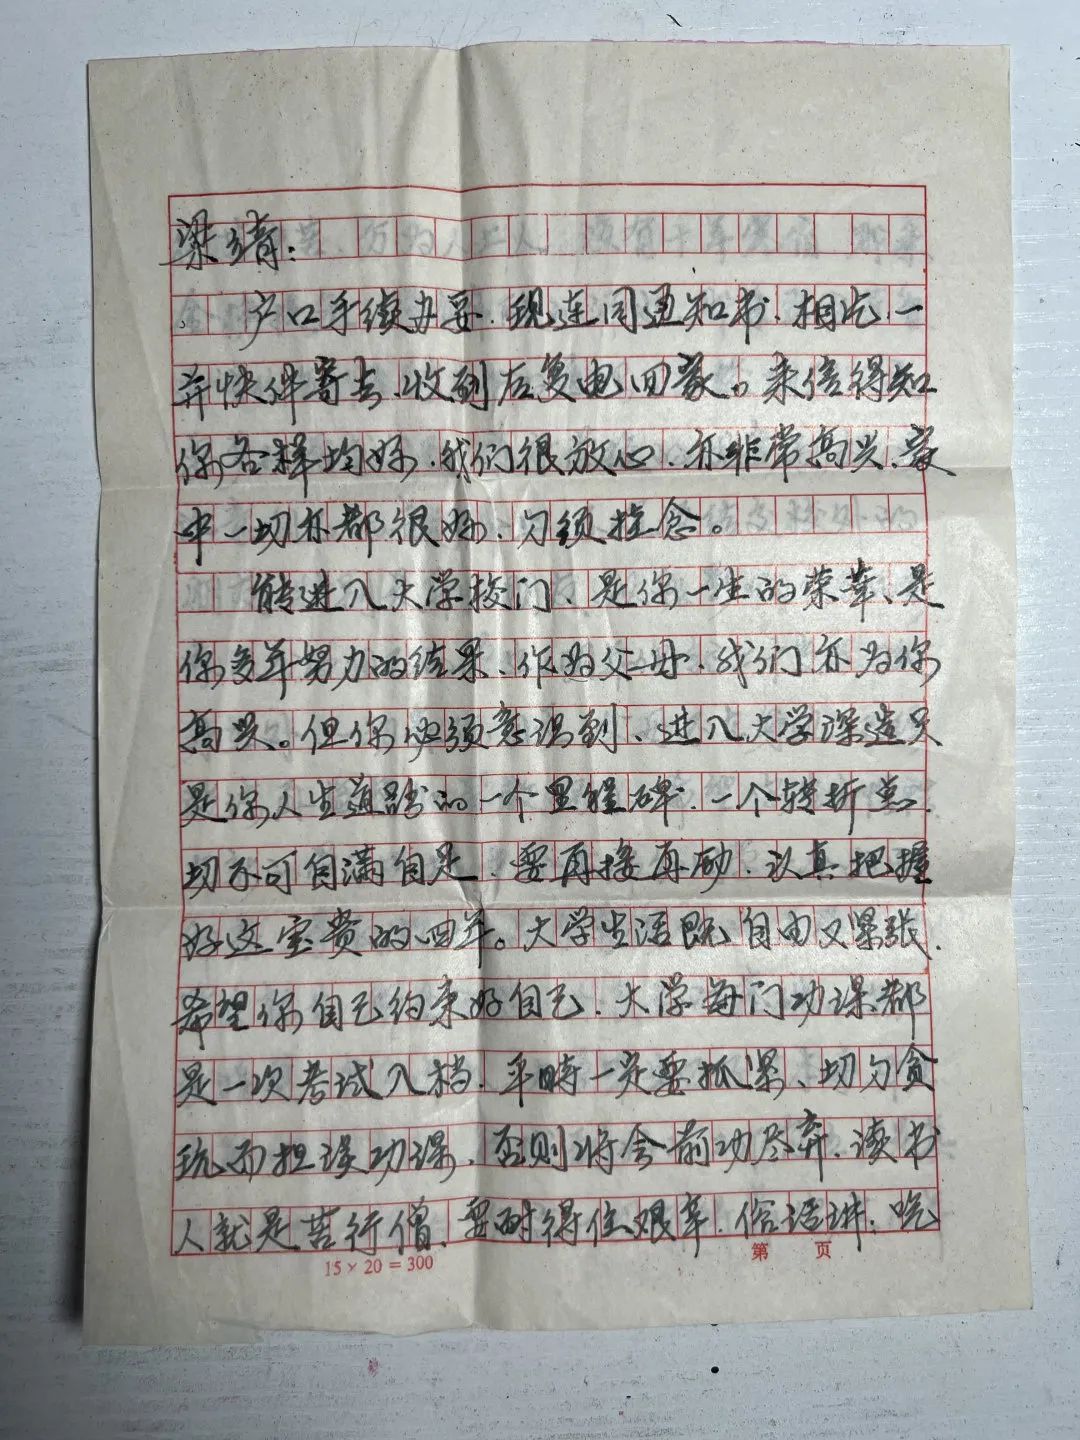 梁靖：
户口手续办妥，现连同通知书、相片，一
并快件寄去，收到后复电回家。来信得知
你各样均好，我们很放心，亦非常高兴，家
中一切亦都很好，勿须挂念。
能进入大学校门，是你一生的荣幸，是
你多年努力的结果，作为父母，我们亦为你
高兴。但你必须意识到，进入大学深造只
是你人生道路的一个里程碑，一个转折点，
切不可自满自足，要再接再励，认真把握
好这宝贵的四年。大学生活既自由又紧张，
希望你自己约束好自己，大学每门功课都
是一次考试入档，平时一定要抓紧，切勿贪
玩而担误功课，否则将会前功尽弃，读书
人就是苦行僧，要耐得住艰辛，俗话讲：吃
15×20=300
第 页